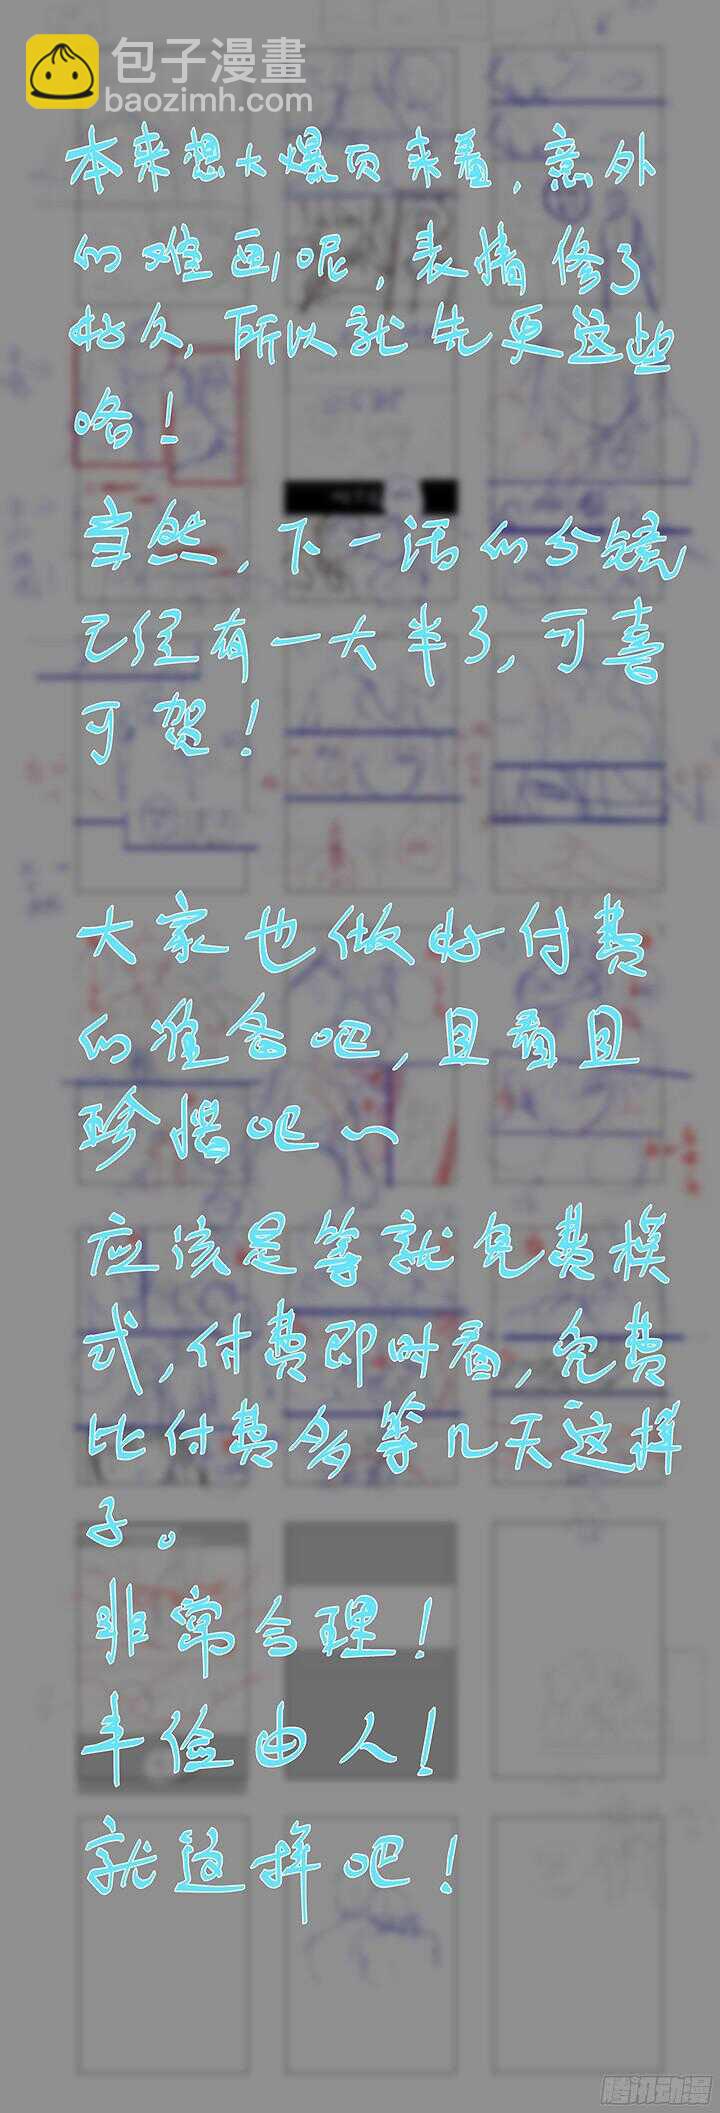 包子漫畫
baozimh.com
本来想大爆页来着,意外
的难画呢,表情修了
好久,所以就先更这些
咯!
当然,下一话的分镜
已经有一大半了,可喜
可贺!
大家也做好付费
的准备吧,且看且
珍惜吧~
应该是等就免费模
式,付费即时看,免费
比付费多等几天这样
子。
非常合理!
丰俭由人!
就这样吧!
腾讯动漫